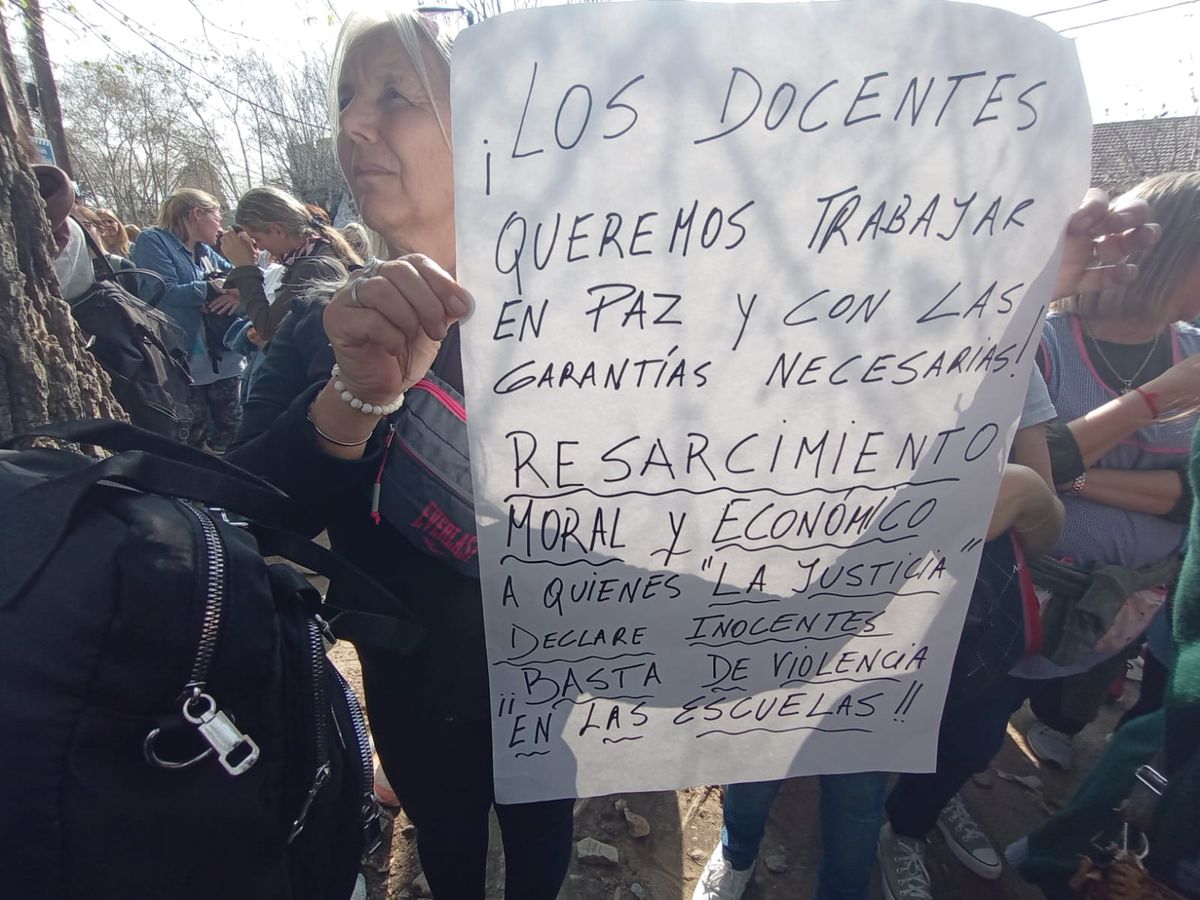 ¡LOS DOCENTES
QUEREMOS TRABAJAR
EN PAZ Y CON LAS
GARANTÍAS NECESARIAS!
RESARCIMIENTO
MORAL Y ECONÓMICO
A QUIENES "LA JUSTICIA"
DECLARE INOCENTES
¡¡BASTA DE VIOLENCIA
EN LAS ESCUELAS!!
EVERLAST